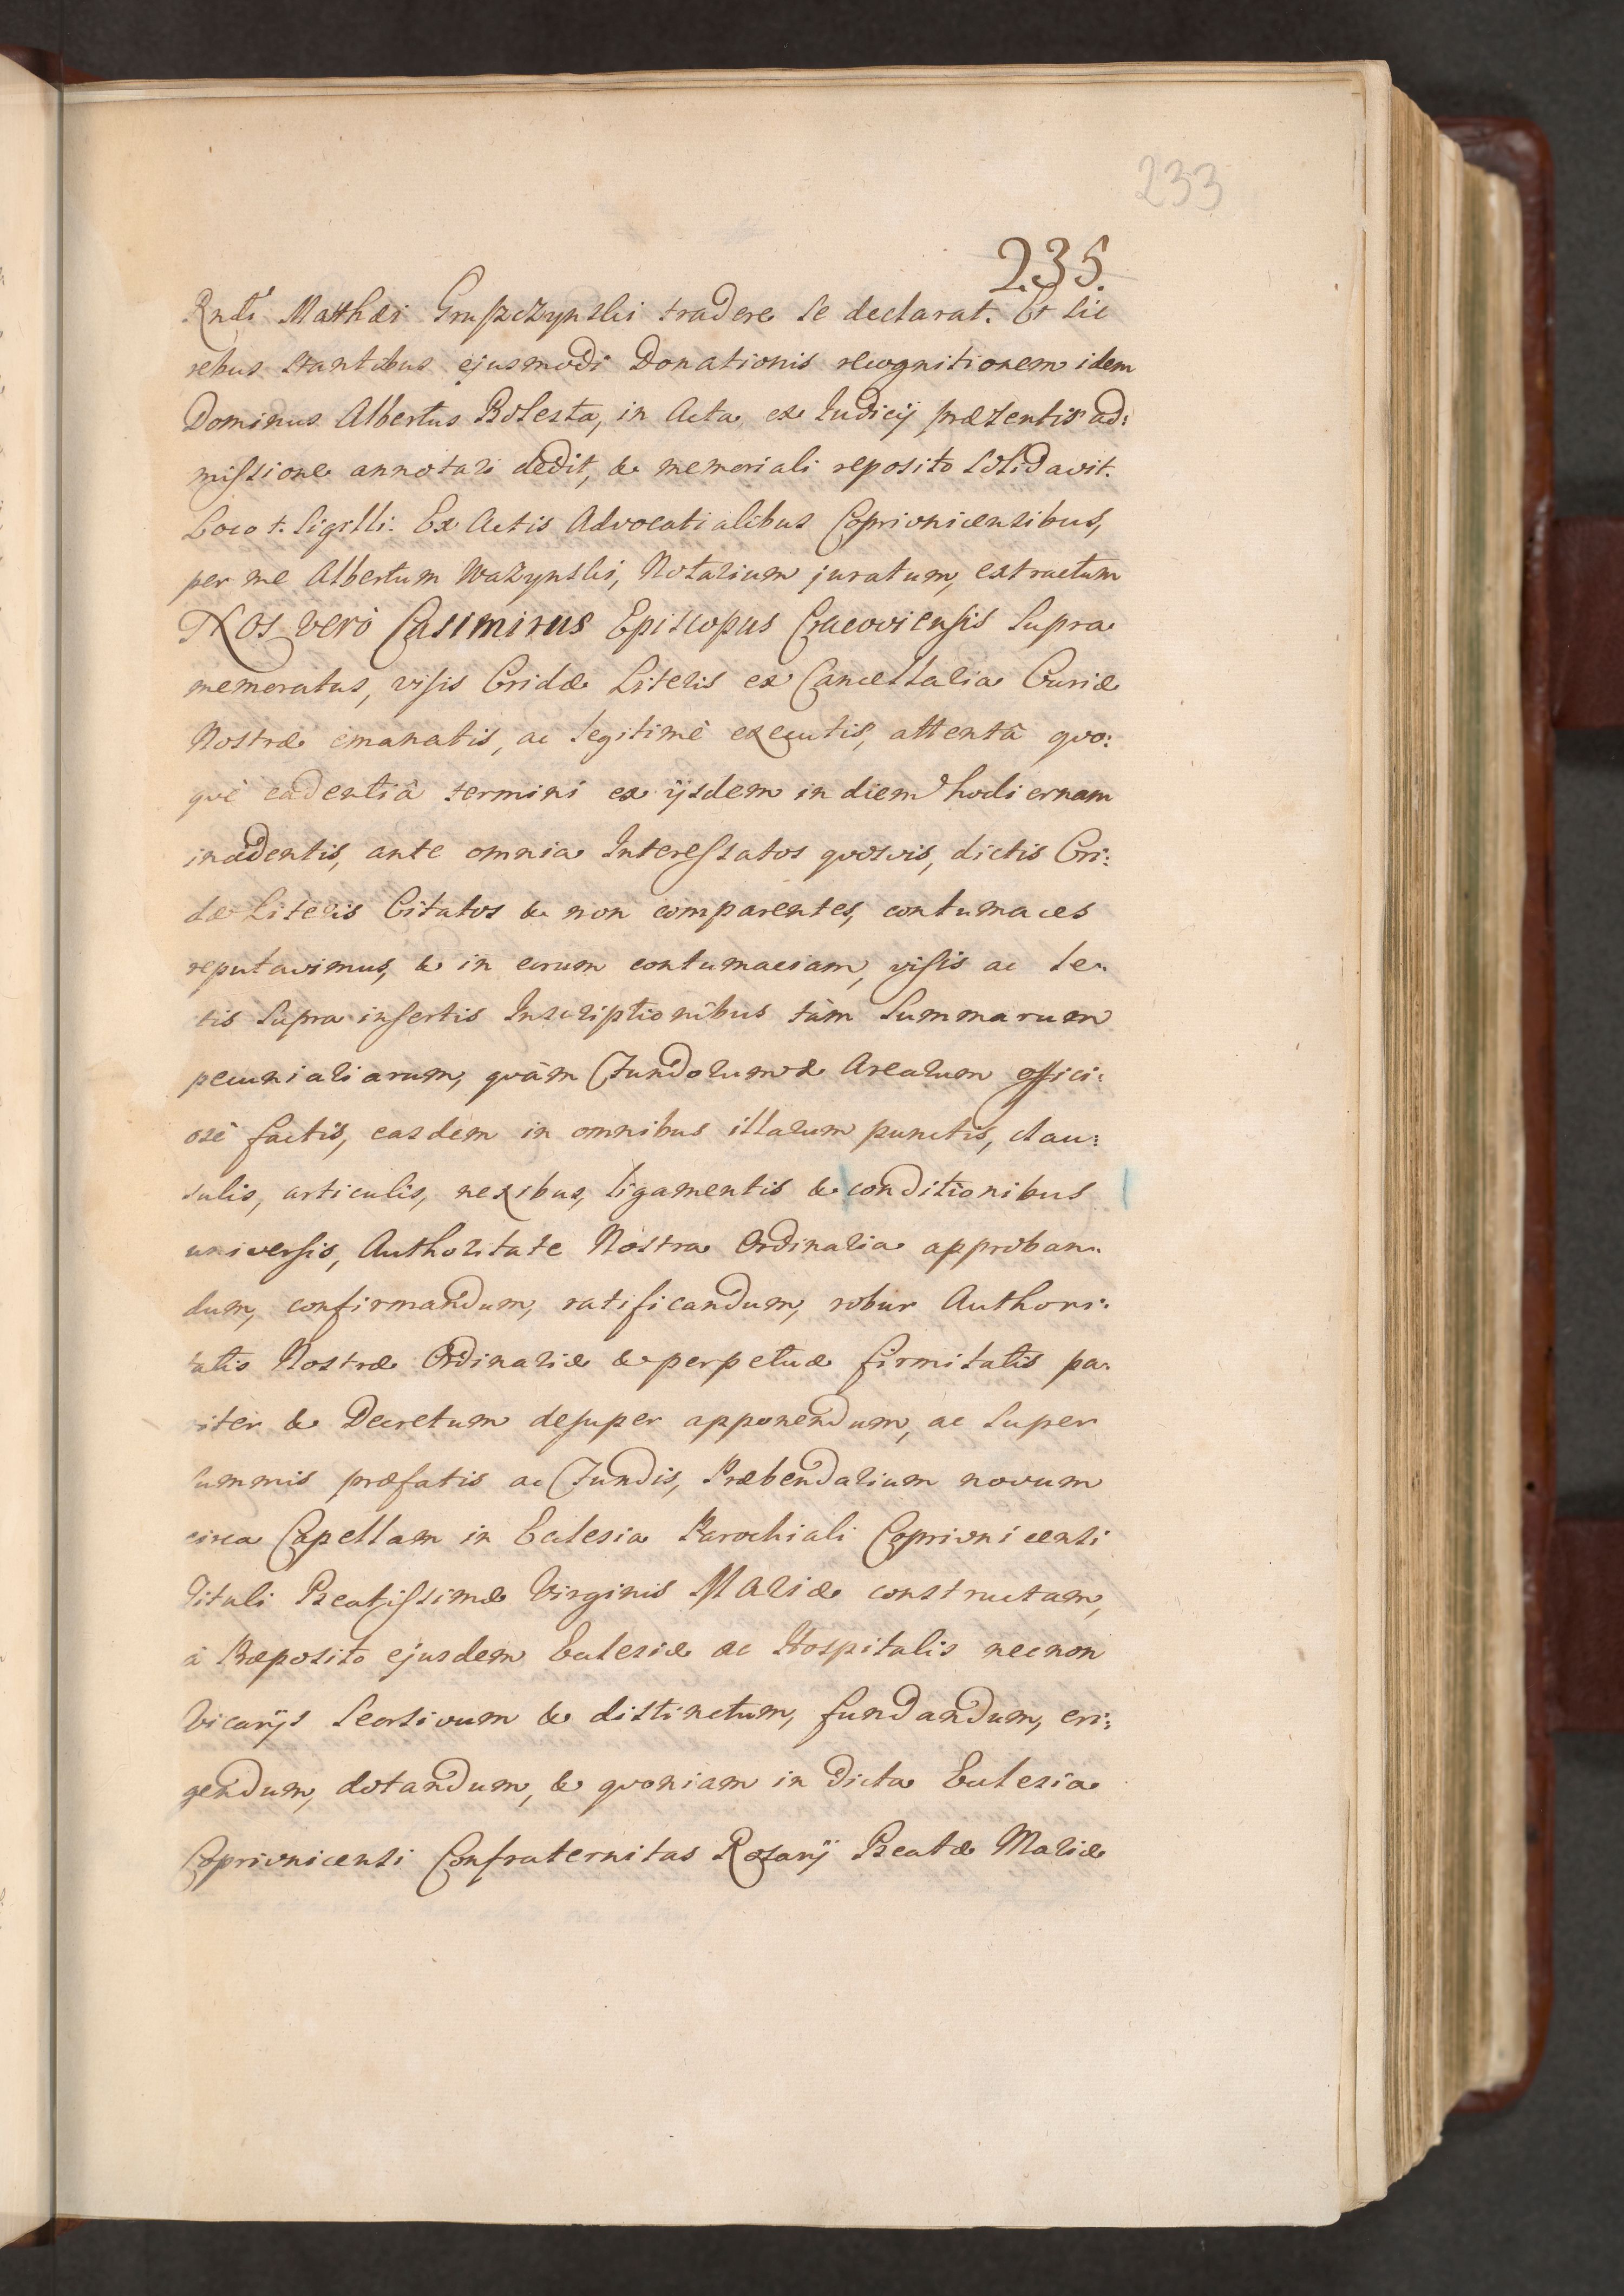 233
235.
Rndi Matthæi Gruszczynski tradere se declarat. Et sic
rebus stantibus ejusmodi Donationis recognitionem idem
Dominus Albertus Bolesta, in Acta ex Iudicij præsentis ad:
missione annotari dedit, & memoriali reposito solidavit.
Loco +. Sigilli: Ex Actis Advocatialibus Coprivnicensibus,
per me Albertum Wazynski, Notarium juratum, extractum
Nos verò Casimirus Episcopus Cracoviensis supra
memoratus, visis Cridæ Literis ex Cancellaria Curiæ
Nostræ emanatis, ac legitimè executis, attentâ quo:
què cadentiâ termini ex ijsdem in diem hodiernam
incidentis, ante omnia Interessatos quosvis, dictis Cri:
dæ Literis Citatos & non comparentes, contumaces
reputavimus, & in eorum contumaciam, visis ac lec:
tis supra insertis Inscriptionibus tàm Summarum
pecuniariarum, quàm Fundorum & Arearum offici:
osè factis, easdem in omnibus illarum punctis, clau:
sulis, articulis, nexibus, ligamentis & conditionibus
universis, Authoritate Nostra Ordinaria approban:
dum, confirmandum, ratificandum, robur Authori:
tatis Nostræ Ordinariæ & perpetuæ firmitatis pa:
riter & Decretum desuper apponendum, ac super
summis præfatis ac Fundis, Præbendarium novum
circa Capellam in Ecclesia Parochiali Coprivnicensi
Tituli Beatissimæ Virginis Mariæ constructam,
à Præposito ejusdem Ecclesiæ ac Hospitalis necnon
Vicarijs seorsivum & distinctum, fundandum, eri:
gendum, dotandum, & quoniam in dicta Ecclesia
Coprivnicensi Confraternitas Rosarij Beatæ Mariæ